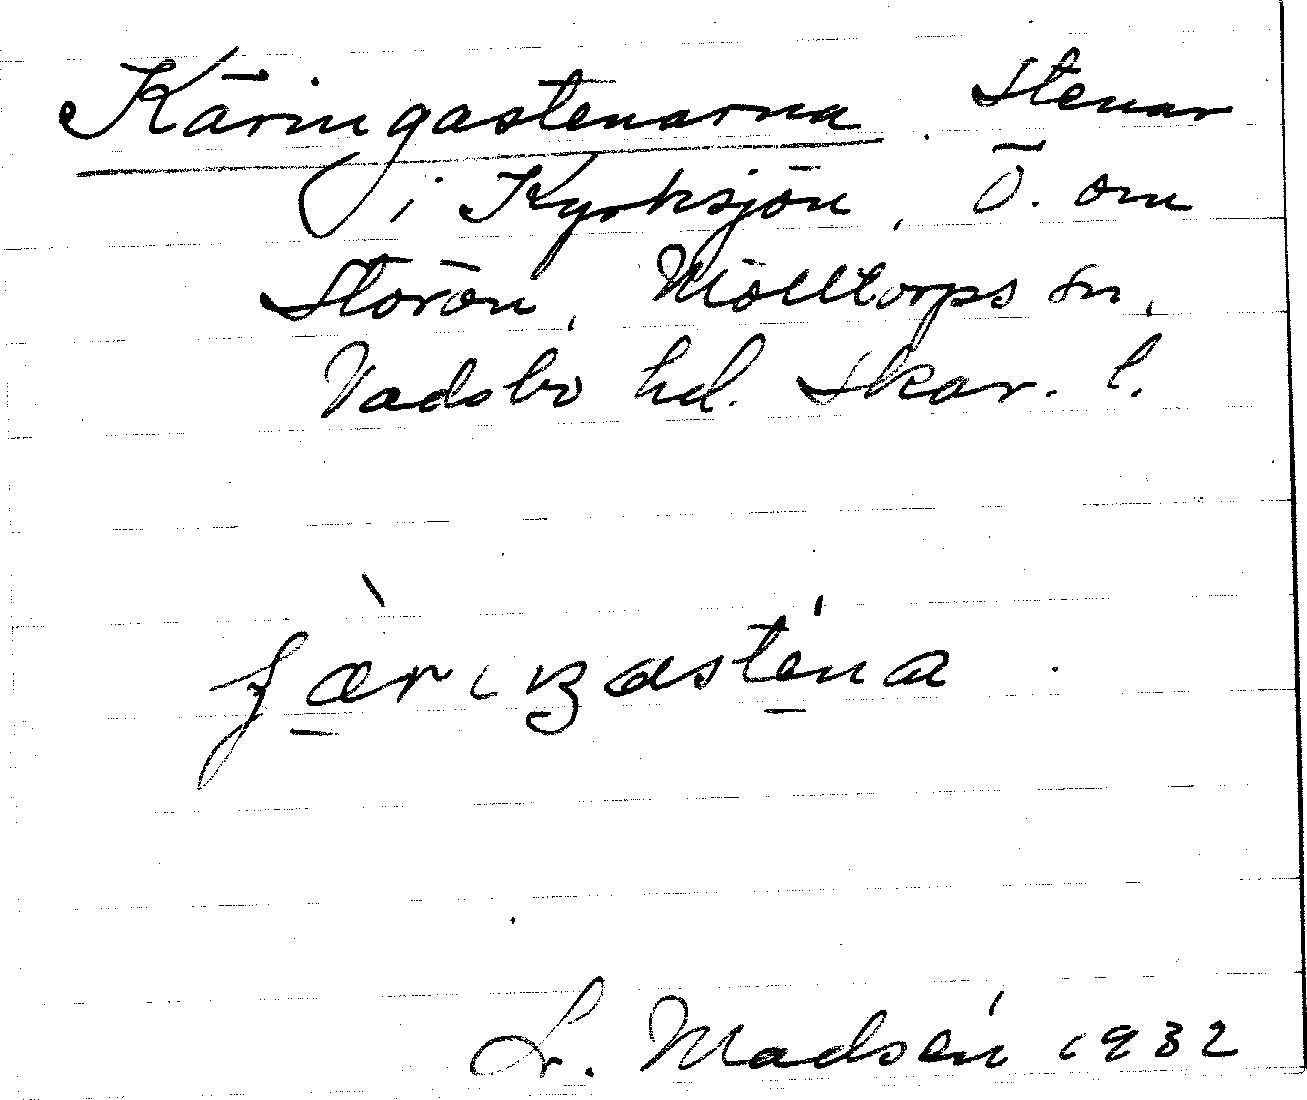 Käringastenarna. Stenar
i Kyrksjön, Ö. om
Storön, Mölltorps sn,
Vadsbo hd. Skar. l.
L. Madsén 1932